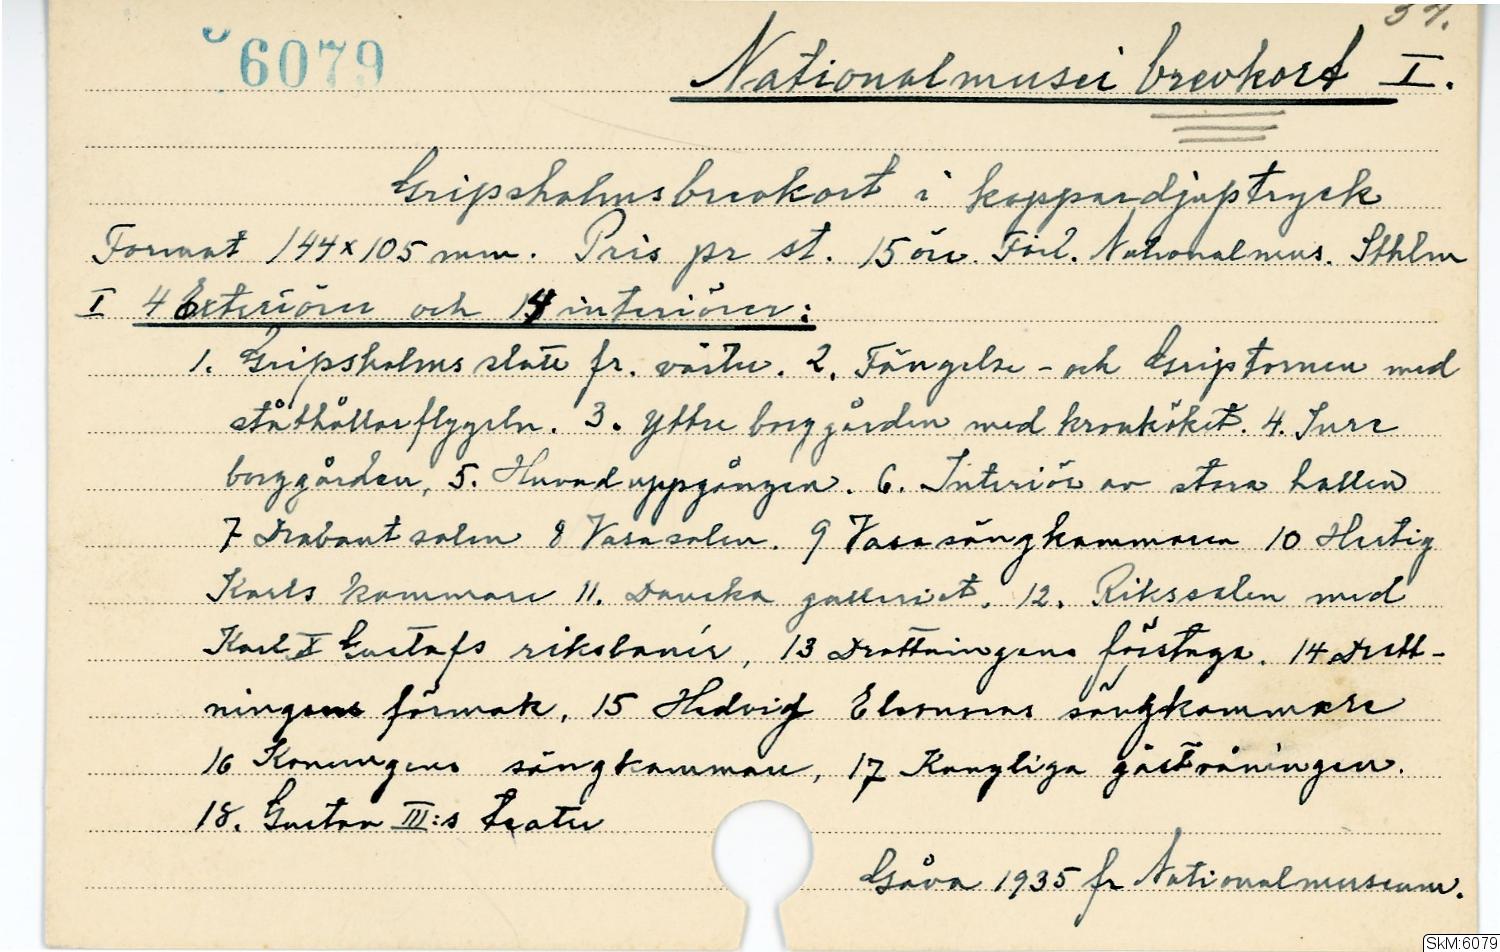 34.
6079
Nationalmusei brevkort I.
Gripsholmsbrevkort i koppardjuptryck
Format 144x105 mm. Pris pr st. 15 öre. Förl. Nationalmus. Sthlm
I 4 Exteriörer och 14 interiörer:
1. Gripsholms slott fr. väster. 2. Fängelse- och Griptornen med
ståthållarflygeln. 3. Yttre borggården med kronköket. 4. Inre
borggården, 5. Huvuduppgången. 6. Interiör av stora hallen
7 Drabantsalen 8 Vasasalen. 9 Vasasängkammaren 10 Hertig
Karls kammare 11. Danska galleriet. 12. Rikssalen med
Karl X Gustafs riksbanér, 13 Drottningens förstuga. 14 Drott-
ningens förmak, 15 Hedvig Eleonoras sängkammare
16 Konungens sängkammare, 17 Kungliga gästvåningen.
18. Gustav III:s teater
Gåva 1935 fr Nationalmuseum.
SkM:6079